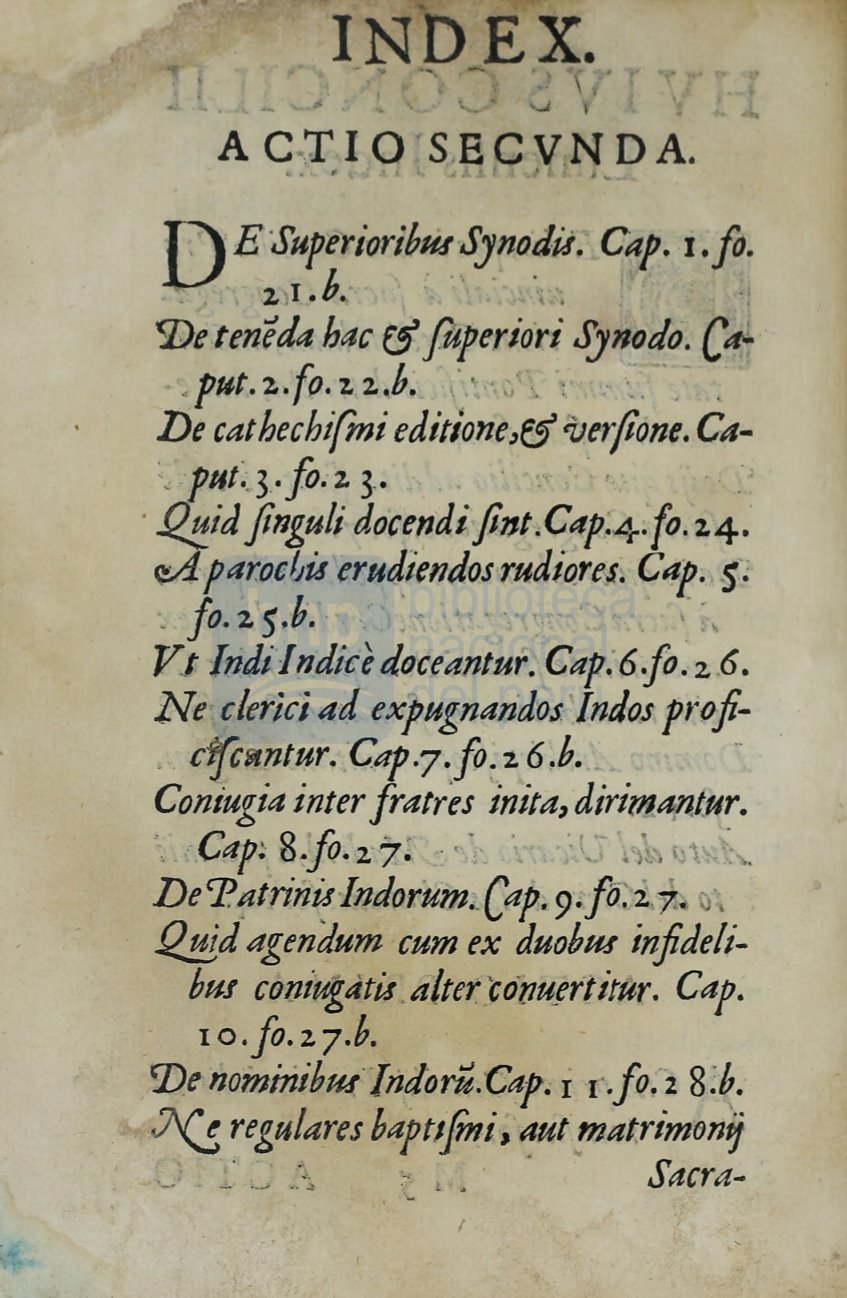 INDEX.
ACTIO SECVNDA.
DE Superioribus Synodis. Cap. 1. fo.
21.b.
De tenēda hac & ſuperiori Synodo. Ca-
put. 2. fo. 22.b.
De cathechiſmi editione, & verſione. Ca-
put. 3. fo. 23.
Quid ſinguli docendi ſint. Cap. 4. fo. 24.
A parochis erudiendos rudiores. Cap. 5.
fo. 25.b.
Vt Indi Indicè doceantur. Cap. 6. fo. 26.
Ne clerici ad expugnandos Indos profi-
ciſcantur. Cap. 7. fo. 26.b.
Coniugia inter fratres inita, dirimantur.
Cap. 8. fo. 27.
De Patrinis Indorum. Cap. 9. fo. 27.
Quid agendum cum ex duobus infideli-
bus coniugatis alter conuertitur. Cap.
10. fo. 27.b.
De nominibus Indorũ. Cap. 11. fo. 28.b.
Ne regulares baptiſmi, aut matrimonij
Sacra-
biblioteca
nacional